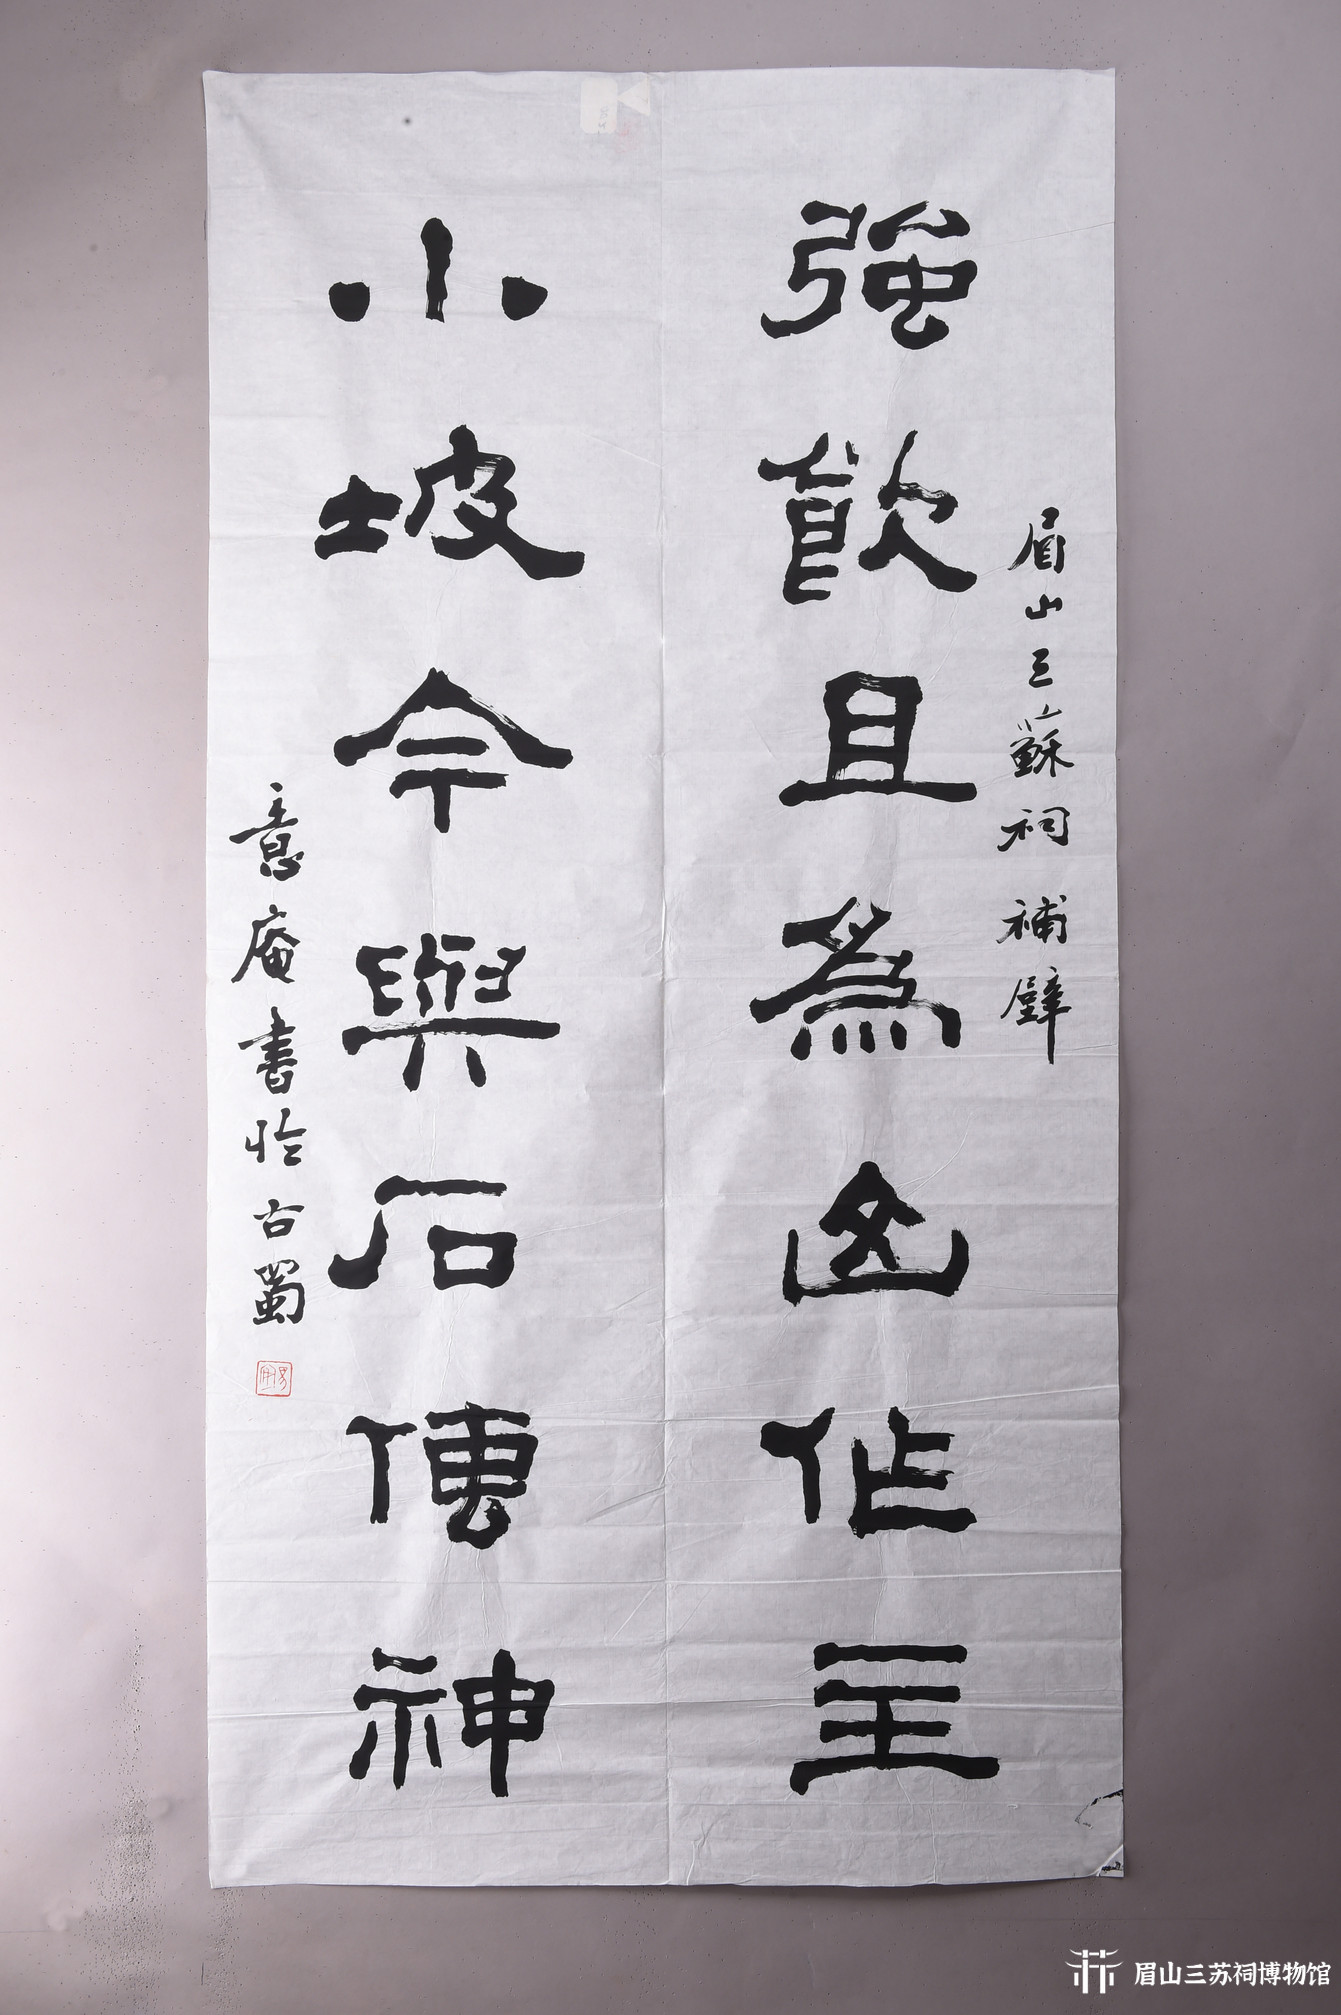 眉山三蘇祠補壁
強飲且為作主
小坡今與石傳神
意庵書於古蜀
眉山三苏祠博物馆